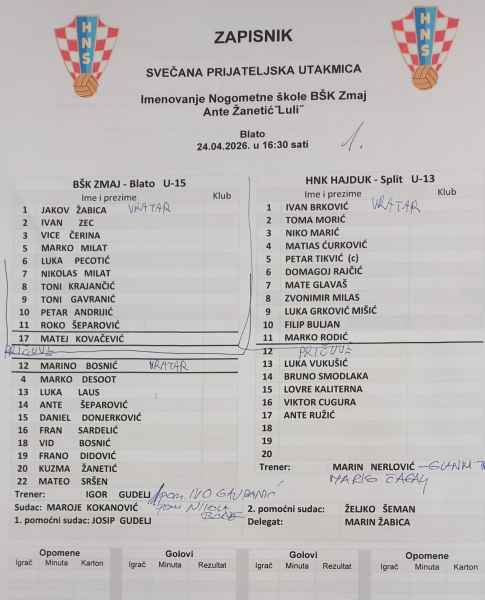 HNS
HNS
ZAPISNIK
SVEČANA PRIJATELJSKA UTAKMICA
Imenovanje Nogometne škole BŠK Zmaj
Ante Žanetić˝Luli˝
Blato
24.04.2026. u 16:30 sati
1.
BŠK ZMAJ - Blato U-15
Ime i prezime Klub
1 JAKOV ŽABICA VRATAR
2 IVAN ZEC
3 VICE ČERINA
5 MARKO MILAT
6 LUKA PECOTIĆ
7 NIKOLAS MILAT
8 TONI KRAJANČIĆ
9 TONI GAVRANIĆ
10 PETAR ANDRIJIĆ
11 ROKO ŠEPAROVIĆ
17 MATEJ KOVAČEVIĆ
PRIČUVE
12 MARINO BOSNIĆ VRATAR
4 MARKO DESOOT
13 LUKA LAUS
14 ANTE ŠEPAROVIĆ
15 DANIEL DONJERKOVIĆ
16 FRAN SARDELIĆ
18 VID BOSNIĆ
19 FRANO DIDOVIĆ
20 KUZMA ŽANETIĆ
22 MATEO SRŠEN
Trener: IGOR GUDELJ pom. IVO GAVRANIĆ
Sudac: MAROJE KOKANOVIĆ pom NIKOLA
1. pomoćni sudac: JOSIP GUDELJ
HNK HAJDUK - Split U-13
Ime i prezime Klub
1 IVAN BRKOVIĆ VRATAR
2 TOMA MORIĆ
3 NIKO MARIĆ
4 MATIAS ĆURKOVIĆ
5 PETAR TIKVIĆ (c)
6 DOMAGOJ RAJČIĆ
7 MATE GLAVAŠ
8 ZVONIMIR MILAS
9 LUKA GRKOVIĆ MIŠIĆ
10 FILIP BULJAN
11 MARKO RODIĆ
12 PRIČUVE
13 LUKA VUKUŠIĆ
14 BRUNO SMODLAKA
15 LOVRE KALITERNA
16 VIKTOR CUGURA
17 ANTE RUŽIĆ
18
19
20
Trener: MARIN NERLOVIĆ
MARIO
2. pomoćni sudac: ŽELJKO ŠEMAN
Delegat: MARIN ŽABICA
Opomene Golovi Golovi Opomene
Igrač Minuta Karton Igrač Minuta Rezultat Igrač Minuta Rezultat Igrač Minuta Karton